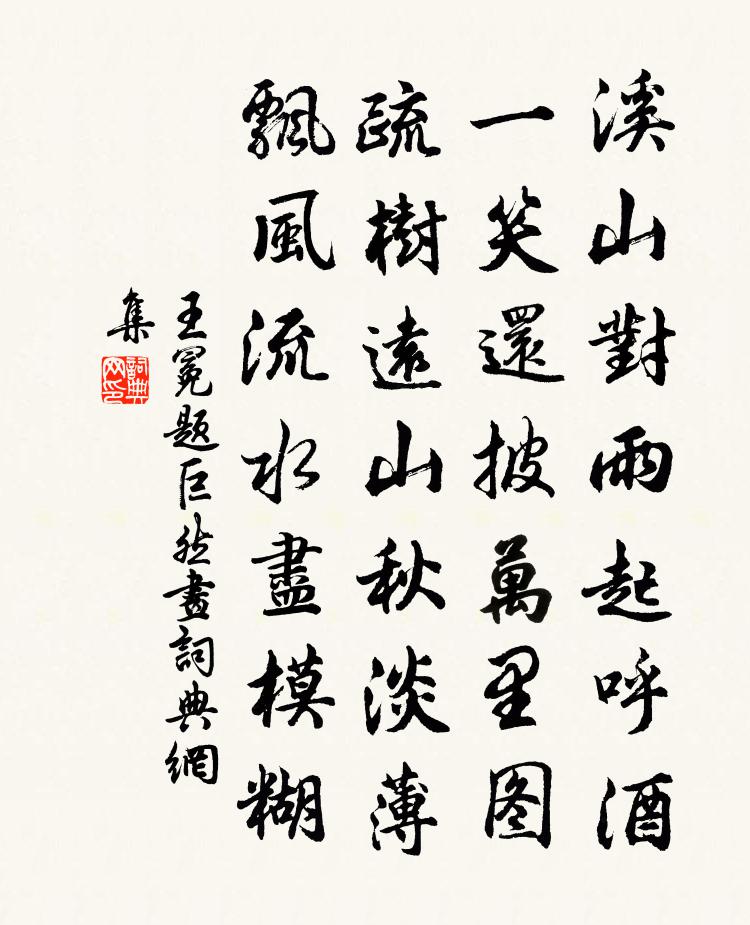 溪山對雨起呼酒
一笑還披萬里图
疏樹遠山秋淡薄
飄風流水盡模糊
王冕題巨然畫詞典網
集
詞典
网印